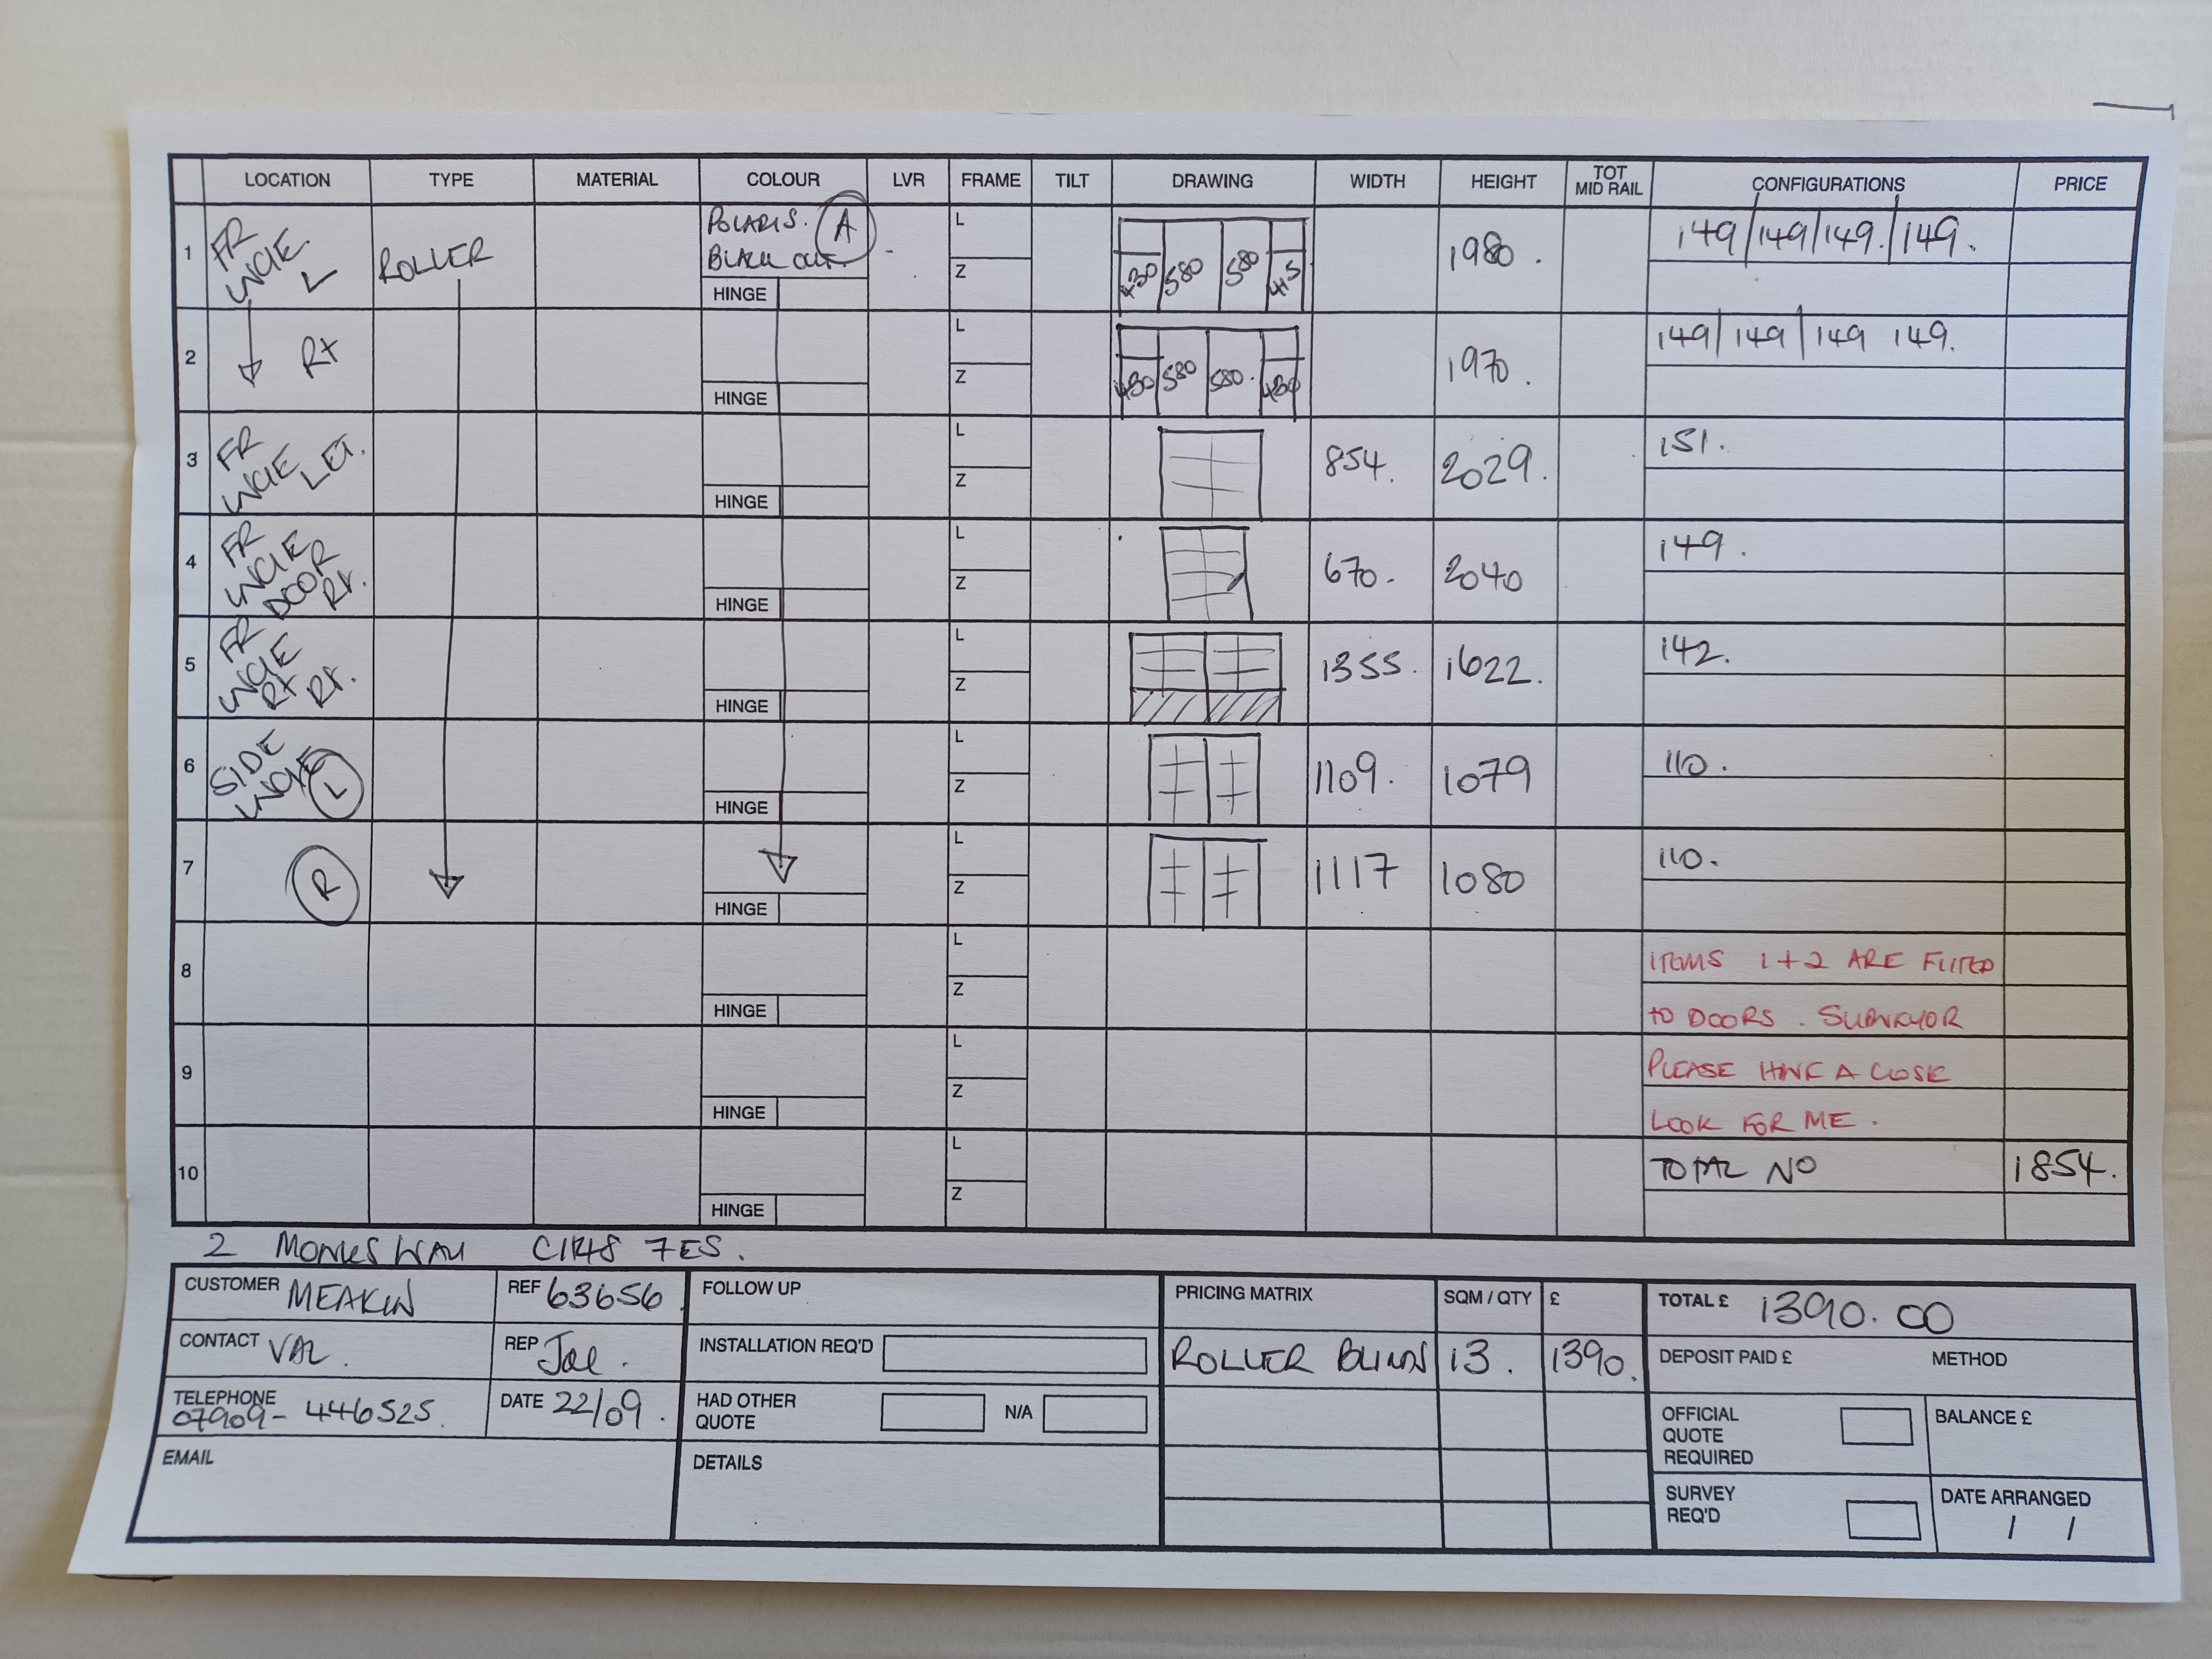 LOCATION TYPE MATERIAL COLOUR LVR FRAME TILT DRAWING WIDTH HEIGHT TOT MID RAIL CONFIGURATIONS PRICE
1 FR L ROLLER POLARIS. A BLACK OUT. HINGE L Z 430 580 580 415 1980. 149/149/149./149.
2 Rt HINGE L Z 430 580 580. 430 1970. 149/149/149 149.
3 FR HINGE L Z 854. 2029. 151.
4 FR DOOR Rt. HINGE L Z 670. 2040 149.
5 FR Rt Rt. HINGE L Z 1355. 1622. 142.
6 SIDE L HINGE L Z 1109. 1079 110.
7 R HINGE L Z 1117 1080 110.
8 HINGE L Z ITEMS 1+2 ARE FITTED
TO DOORS. SURVEYOR
9 HINGE L Z PLEASE HAVE A CLOSE
LOOK FOR ME.
10 HINGE L Z TOTAL NO 1854.
2 MONKS WAY 7ES.
CUSTOMER MEAKIN REF 63656. FOLLOW UP PRICING MATRIX SQM / QTY £ TOTAL £ 1390.00
CONTACT VAL. REP Joe. INSTALLATION REQ'D ROLLER BLINDS 13. 1390. DEPOSIT PAID £ METHOD
TELEPHONE 07909-446525. DATE 22/09. HAD OTHER QUOTE N/A OFFICIAL QUOTE REQUIRED BALANCE £
EMAIL DETAILS SURVEY REQ'D DATE ARRANGED / /